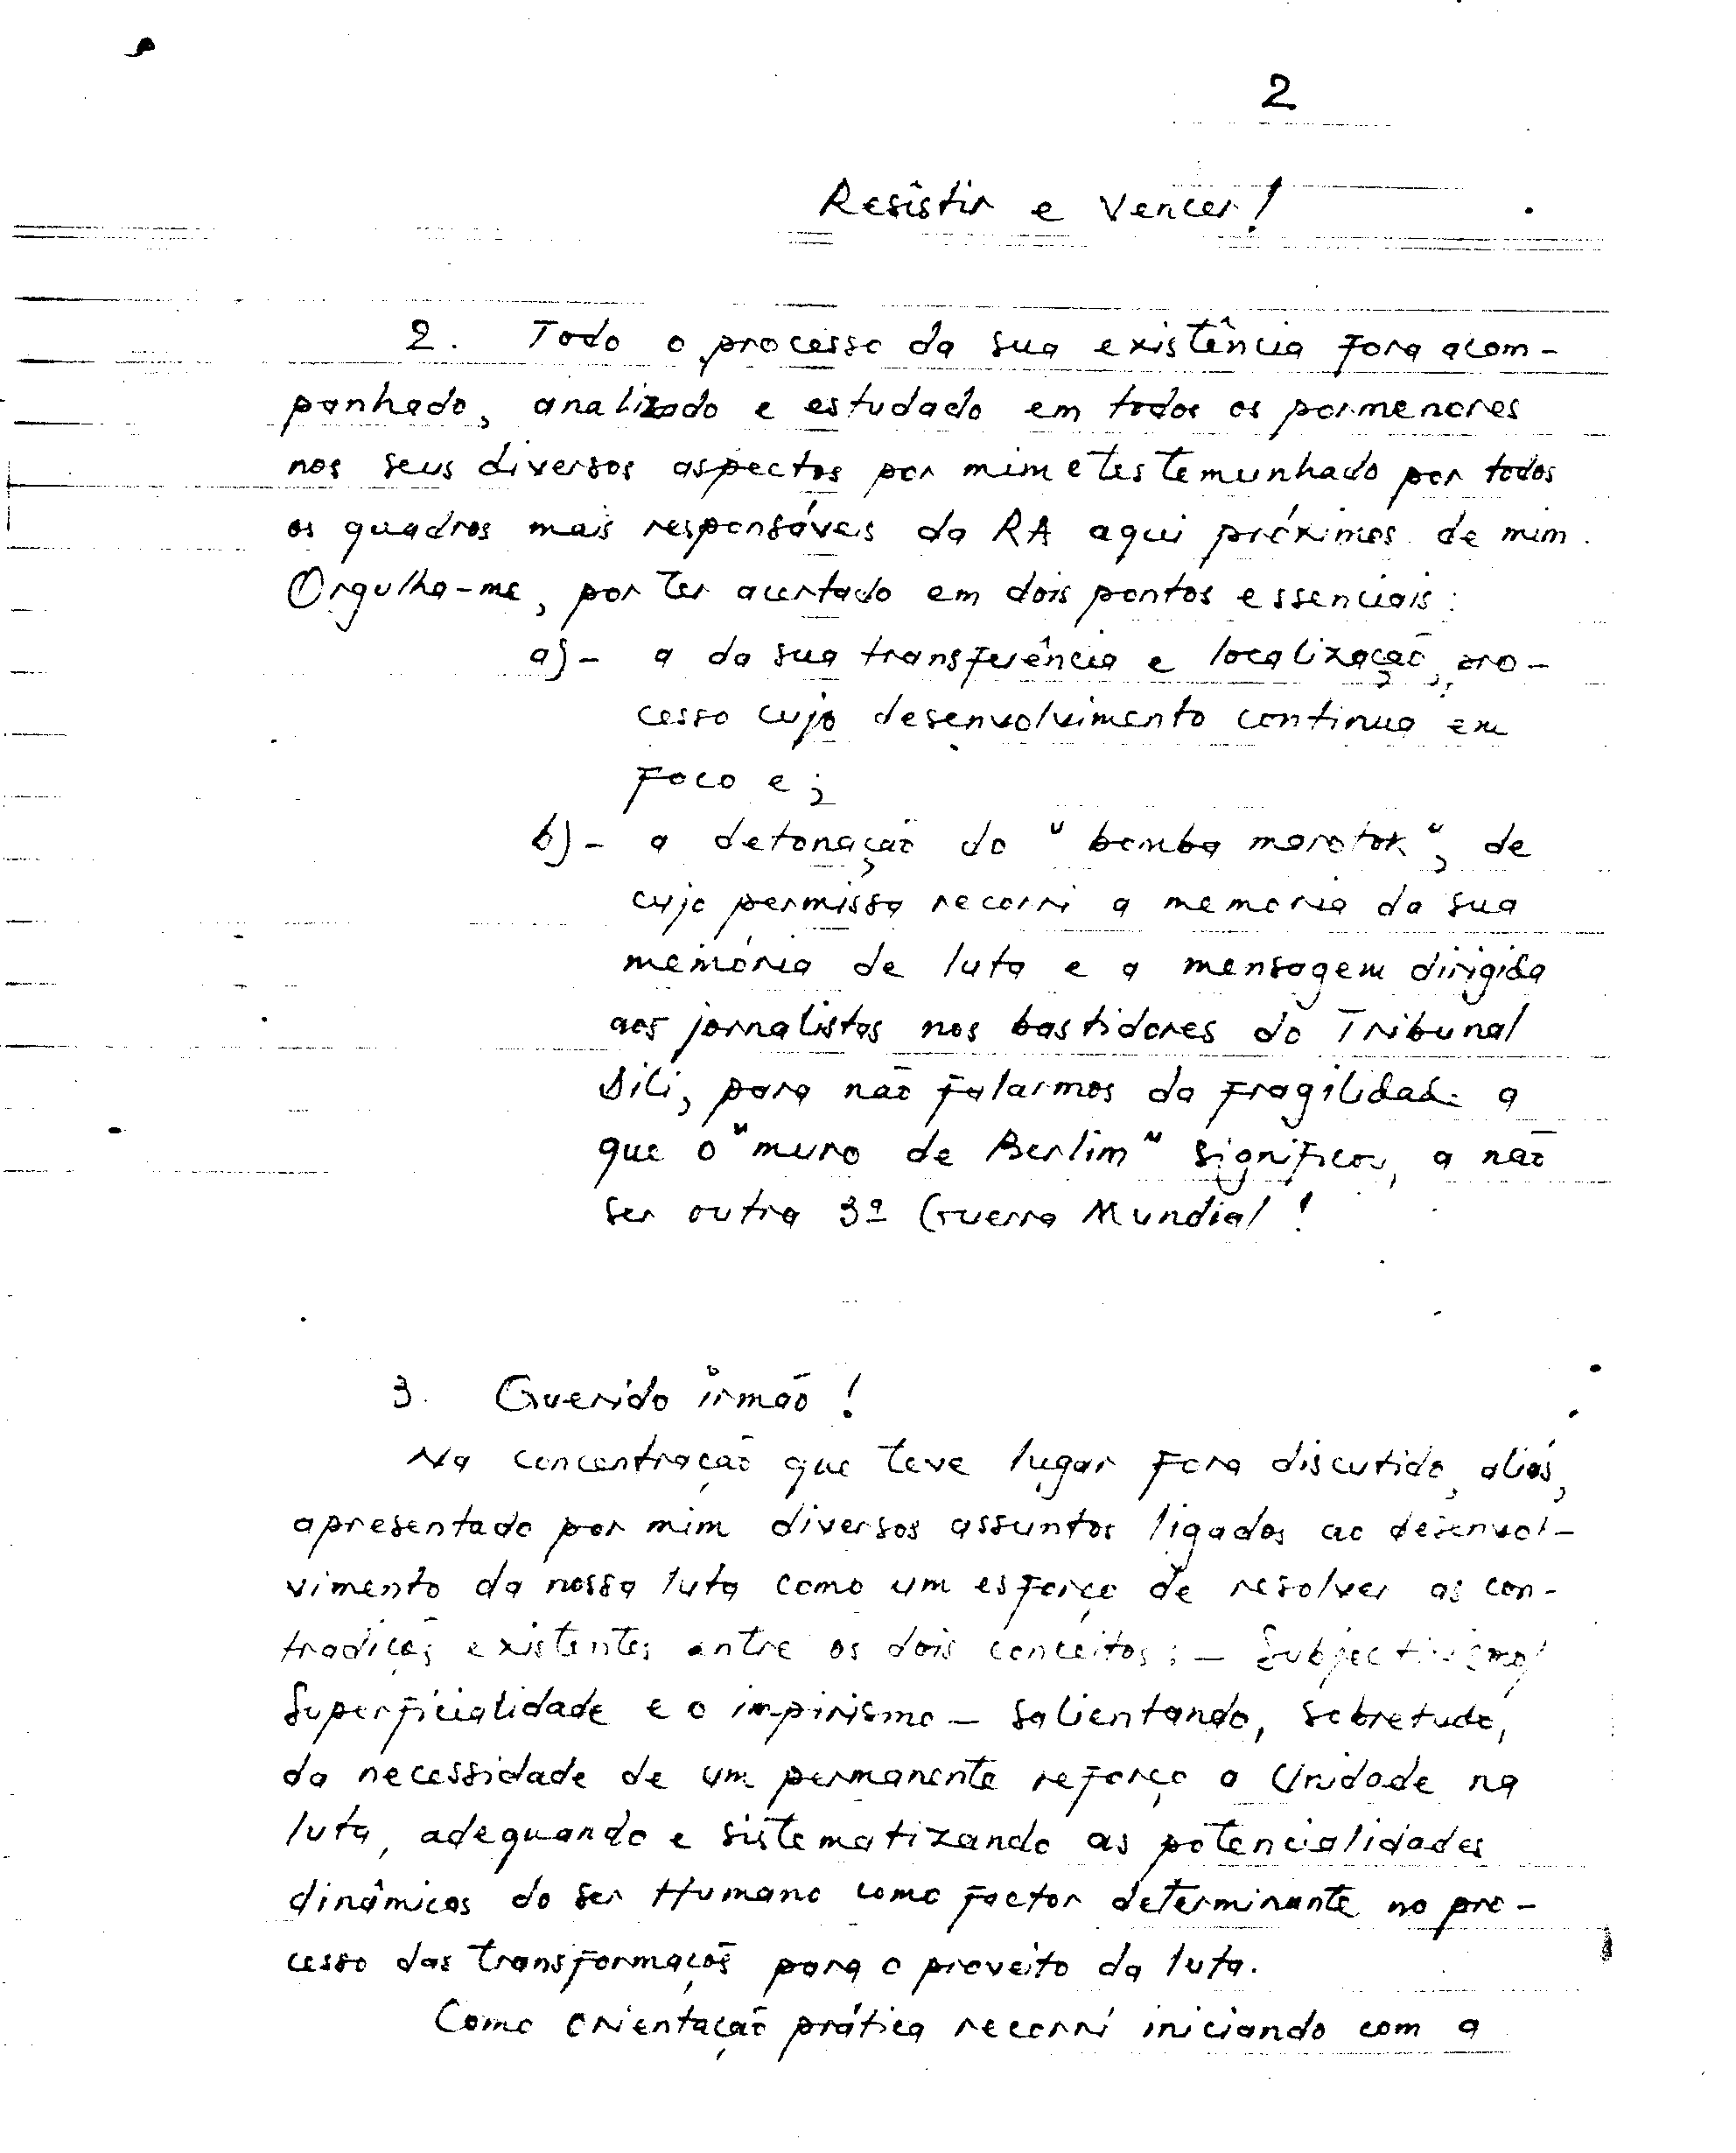 2
Resistir e Vencer!
2. Todo o processo da sua existência fora acom-
panhado, analizado e estudado em todos os pormenores
nos seus diversos aspectos por mim e testemunhado por todos
os quadros mais responsáveis da RA aqui próximos de mim.
Orgulho-me, por ter acertado em dois pontos essenciais:
a)- a da sua transferência e localização, pro-
cesso cujo desenvolvimento continua em
foco e;
b)- a detonação do "bomba marotok", de
cujo permissa recorri a memoria da sua
memória de luta e a mensagem dirigida
aos jornalistas nos bastidores do Tribunal
Dili, para não falarmos da fragilidade a
que o "muro de Berlim" significou, a não
ser outra 3ª Guerra Mundial!
3. Querido irmão!
Na concentração que teve lugar fora discutido, aliás,
apresentado por mim diversos assuntos ligados ao desenvol-
vimento da nossa luta como um esforço de resolver as con-
tradições existentes entre os dois conceitos: - Subjectivismo/
Superficialidade e o impirismo - salientando, sobretudo,
da necessidade de um permanente reforço a Unidade na
luta, adequando e sistematizando as potencialidades
dinâmicas do ser Humano como factor determinante no pro-
cesso das transformações para o proveito da luta.
Como orientação prática recorri iniciando com a